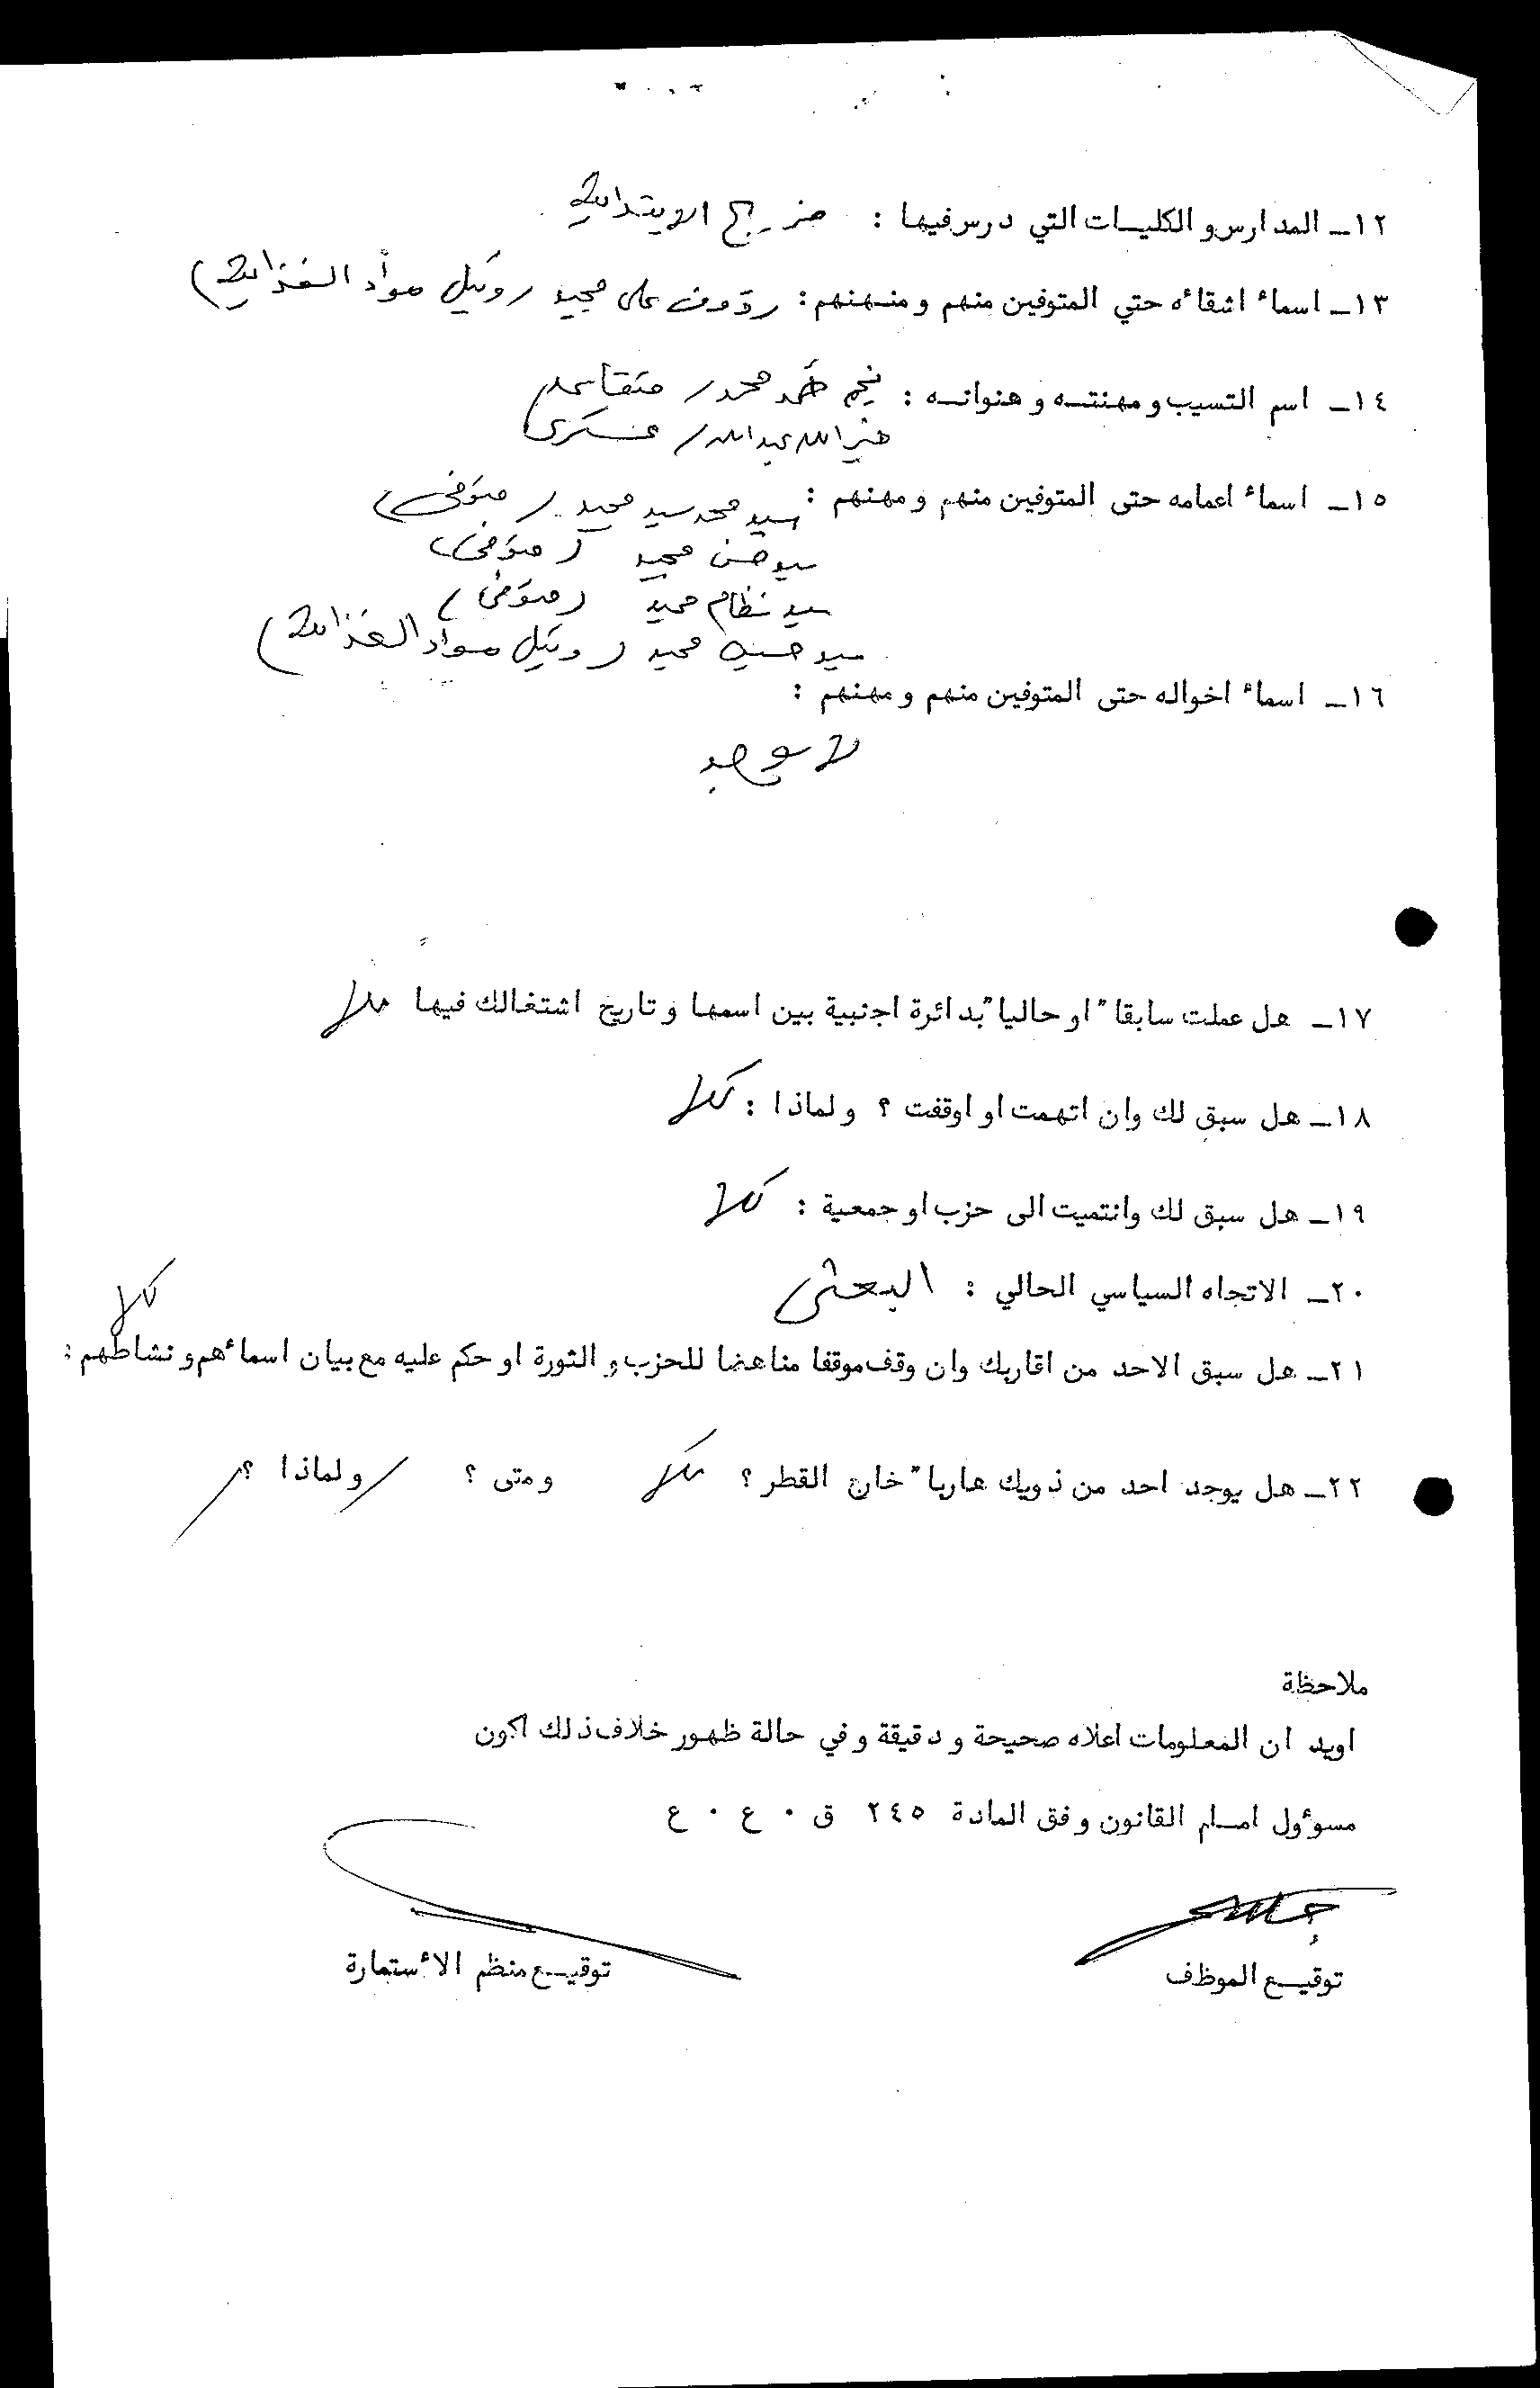 ١٢ـ المدارس و الكليات التي درس فيها : خريج الابتدائية
١٣ـ اسماء اشقائه حتي المتوفين منهم ومنهنهم : رؤوف علي مجيد (وكيل مواد الغذائية)
١٤ـ اسم التسيب و مهنته و هنوانه : نجم محمد / متقاعد
خيرالله عبدالله / عسكري
١٥ـ اسماء اعمامه حتى المتوفين منهم و مهنهم : سيد محمد سيد مجيد (متوفى)
سيد حسن مجيد (متوفى)
سيد نظام مجيد (متوفى)
سيد حسين مجيد (وكيل مواد الغذائية)
١٦ـ اسماء اخواله حتى المتوفين منهم و مهنهم :
لا يوجد
١٧ـ هل عملت سابقا" او حاليا" بدائرة اجنبية بين اسمها و تاريخ اشتغالك فيها كلا
١٨ـ هل سبق لك وان اتهمت او اوقفت ؟ ولماذا : كلا
١٩ـ هل سبق لك وانتميت الى حزب او جمعية : كلا
٢٠ـ الاتجاه السياسي الحالي : البعثي
٢١ـ هل سبق الاحد من اقاربك وان وقف موقفا مناهضا للحزب و الثورة او حكم عليه مع بيان اسمائهم و نشاطهم : كلا
٢٢ـ هل يوجد احد من ذويك هاربا" خارج القطر ؟ كلا ومتى ؟ / ولماذا ؟ /
ملاحظة
اويد ان المعلومات اعلاه صحيحة و دقيقة و في حالة ظهور خلاف ذلك اكون
مسوؤول امام القانون وفق المادة ٢٤٥ ق ٠ ع ٠ ع
توقيع الموظف توقيع منظم الأستمارة